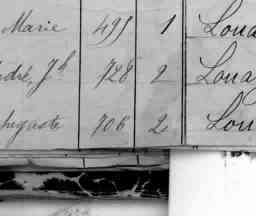 Marie 495 1 Loua
dré, Jh 728 2 Loua
hugaste 706 2 Lou